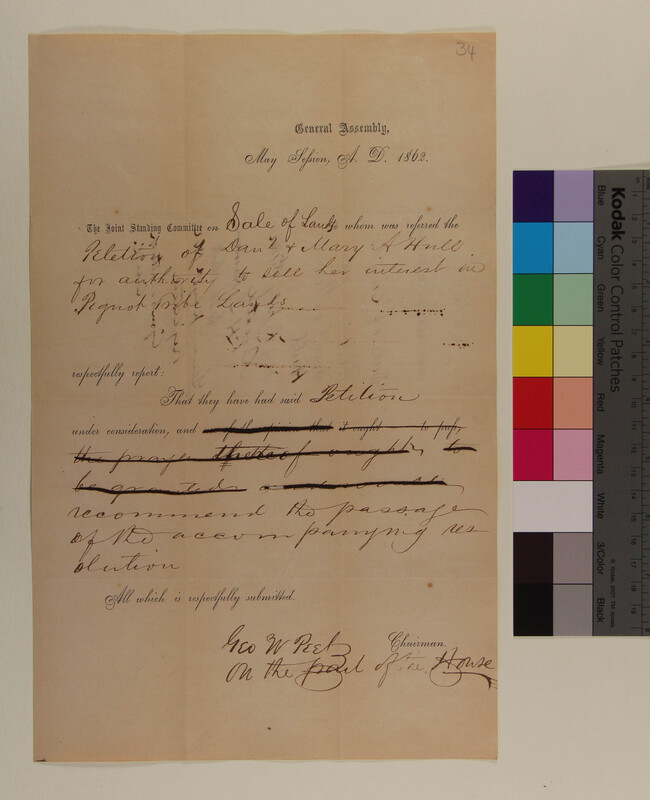 34
General Assembly,
May Session, A. D. 1862.
The Joint Standing Committee on Sale of Lands whom was referred the
Petition of Danl & Mary A Hull
for authority to sell her interest in
Pequot tribe Lands
respectfully report:
That they have had said Petition
under consideration, and of the opinion that it ought to pass,
the prayer thereof ought to
be granted
recommend the passage
of the accompanying res
olution
All which is respectfully submitted.
Geo W Peet Chairman.
on the part of the House
Kodak Color Control Patches
Blue
Cyan
Green
Yellow
Red
Magenta
White
3/Color
Black